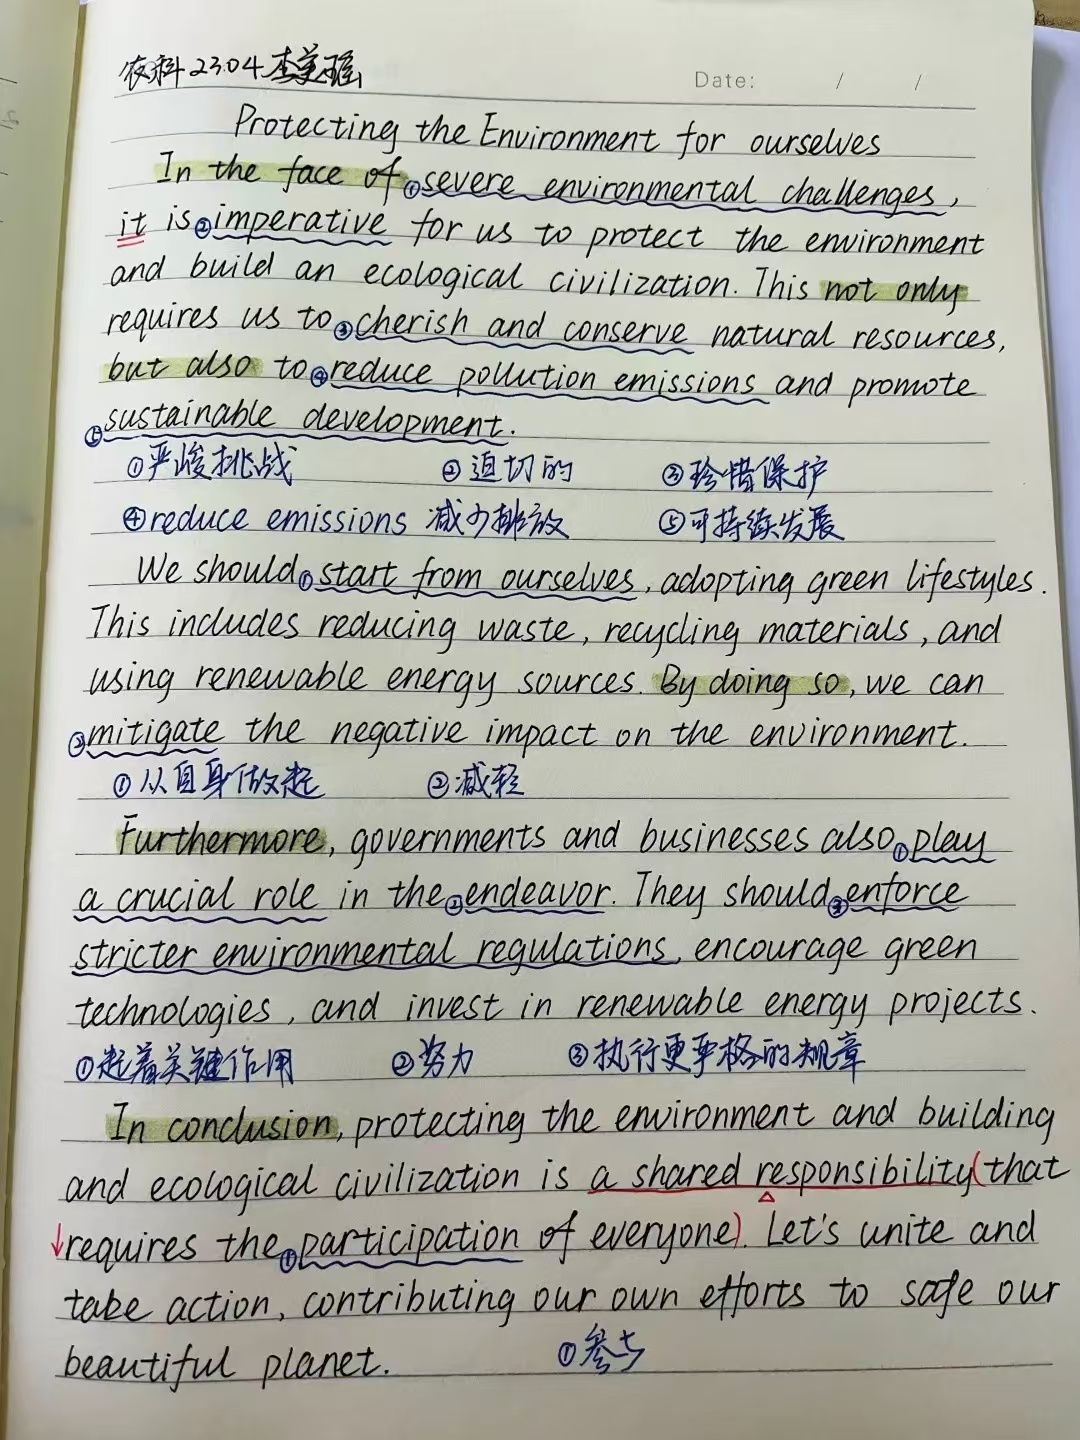 农科2304李美瑶
Date: / /
Protecting the Environment for ourselves
In the face of ①severe environmental challenges,
it is ②imperative for us to protect the environment
and build an ecological civilization. This not only
requires us to ③cherish and conserve natural resources,
but also to ④reduce pollution emissions and promote
⑤sustainable development.
①严峻挑战 ②迫切的 ③珍惜保护
④reduce emissions 减少排放 ⑤可持续发展
We should ①start from ourselves, adopting green lifestyles.
This includes reducing waste, recycling materials, and
using renewable energy sources. By doing so, we can
②mitigate the negative impact on the environment.
①从自身做起 ②减轻
Furthermore, governments and businesses also ①play
a crucial role in the ②endeavor. They should ③enforce
stricter environmental regulations, encourage green
technologies, and invest in renewable energy projects.
①起着关键作用 ②努力 ③执行更严格的规章
In conclusion, protecting the environment and building
and ecological civilization is a shared responsibility(that
requires the ①participation of everyone). Let's unite and
take action, contributing our own efforts to safe our
beautiful planet. ①参与